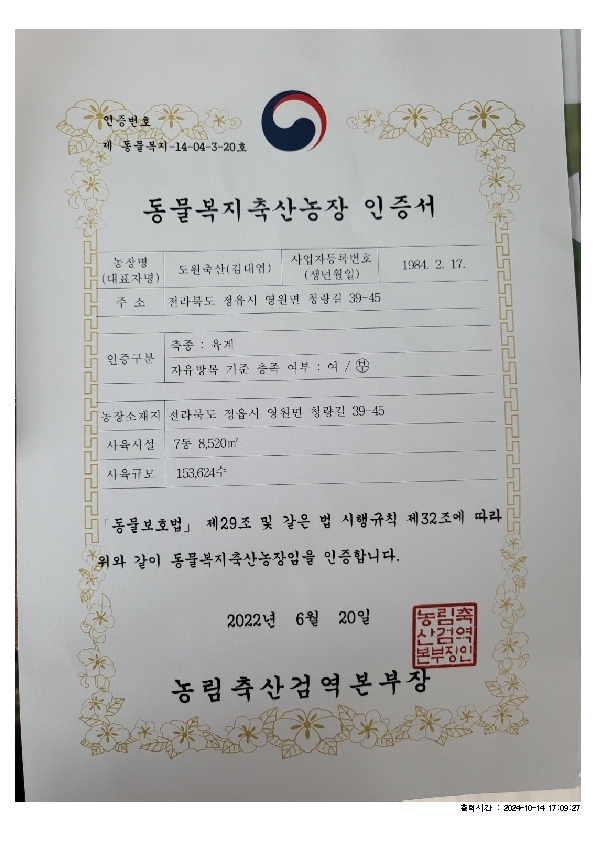 인증번호
제 동물복지-14-04-3-20호
동물복지축산농장 인증서
농장명 (대표자명) 도원축산(김대엽) 사업자등록번호 (생년월일) 1984. 2. 17.
주 소 전라북도 정읍시 영원면 청량길 39-45
인증구분 축종 : 육계
자유방목 기준 충족 여부 : 여 / 부
농장소재지 전라북도 정읍시 영원면 청량길 39-45
사육시설 7동 8,520㎡
사육규모 153,624수
「동물보호법」 제29조 및 같은 법 시행규칙 제32조에 따라
위와 같이 동물복지축산농장임을 인증합니다.
2022년 6월 20일
농림축
산검역
본부장인
농림축산검역본부장
출력시간 : 2024-10-14 17:09:27